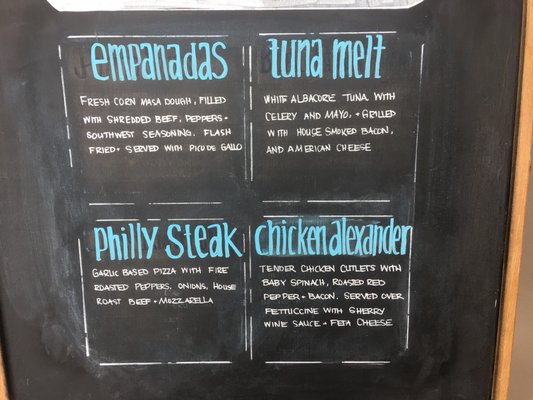 empanadas
FRESH CORN MASA DOUGH, FILLED
WITH SHREDDED BEEF, PEPPERS +
SOUTHWEST SEASONING. FLASH
FRIED + SERVED WITH PICO DE GALLO
tuna melt
WHITE ALBACORE TUNA WITH
CELERY AND MAYO, + GRILLED
WITH HOUSE SMOKED BACON,
AND AMERICAN CHEESE
Philly Steak
GARLIC BASED PIZZA WITH FIRE
ROASTED PEPPERS, ONIONS, HOUSE
ROAST BEEF + MOZZARELLA
chicken alexander
TENDER CHICKEN CUTLETS WITH
BABY SPINACH, ROASTED RED
PEPPER + BACON. SERVED OVER
FETTUCCINE WITH SHERRY
WINE SAUCE + FETA CHEESE